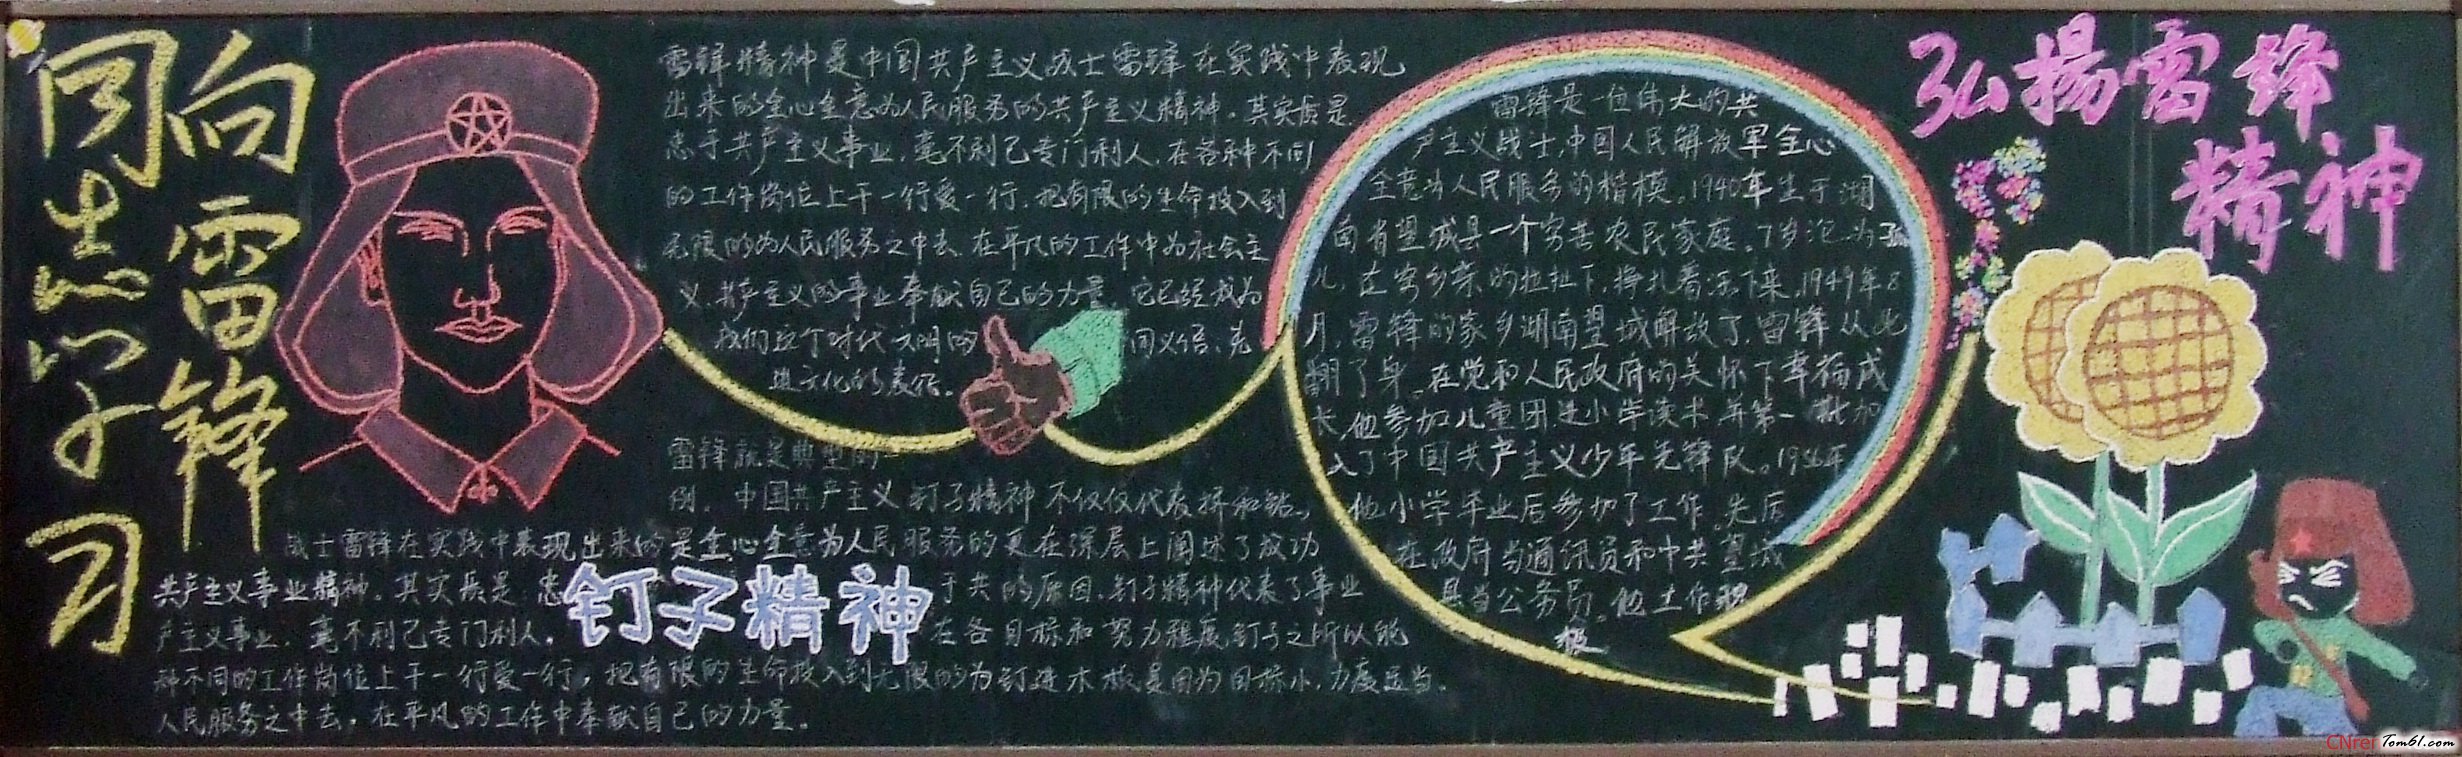 向雷锋
同志学习
雷锋精神是中国共产主义战士雷锋在实践中表现
出来的全心全意为人民服务的共产主义精神。其实质是
忠于共产主义事业,毫不利己专门利人,在各种不同
的工作岗位上干一行爱一行,把有限的生命投入到
无限的为人民服务之中去,在平凡的工作中为社会主
义,共产主义的事业奉献自己的力量 它已经成为
我们这个时代文明的 同义语、先
进文化的表征。
雷锋就是典型的
例。中国共产主义钉子精神不仅仅代表拼和钻,
战士雷锋在实践中表现出来的是全心全意为人民服务的更在深层上阐述了成功
共产主义事业精神。其实质是:忠 于共的原因,钉子精神代表了事业
钉子精神
产主义事业、毫不利己专门利人。 在各目标和努力程度,钉子之所以能
种不同的工作岗位上干一行爱一行,把有限的生命投入到无限的为钉进木板是因为目标小,力度适当。
人民服务之中去,在平凡的工作中奉献自己的力量。
雷锋是一位伟大的共
产主义战士,中国人民解放军全心
全意为人民服务的楷模。1940年生于湖
南省望城县一个穷苦农民家庭。7岁沦为孤
儿,在穷乡亲的拉扯下,挣扎着活下来。1949年8
月,雷锋的家乡湖南望城解放了,雷锋从此
翻了身。在党和人民政府的关怀下幸福成
长,他参加儿童团进小学读术并第一批加
入了中国共产主义少年先锋队。1956年
他小学毕业后参加了工作,先后
在政府当通讯员和中共望城
县当公务员。他工作积
极
弘揚雷锋
精神
CNrer Tom61.com